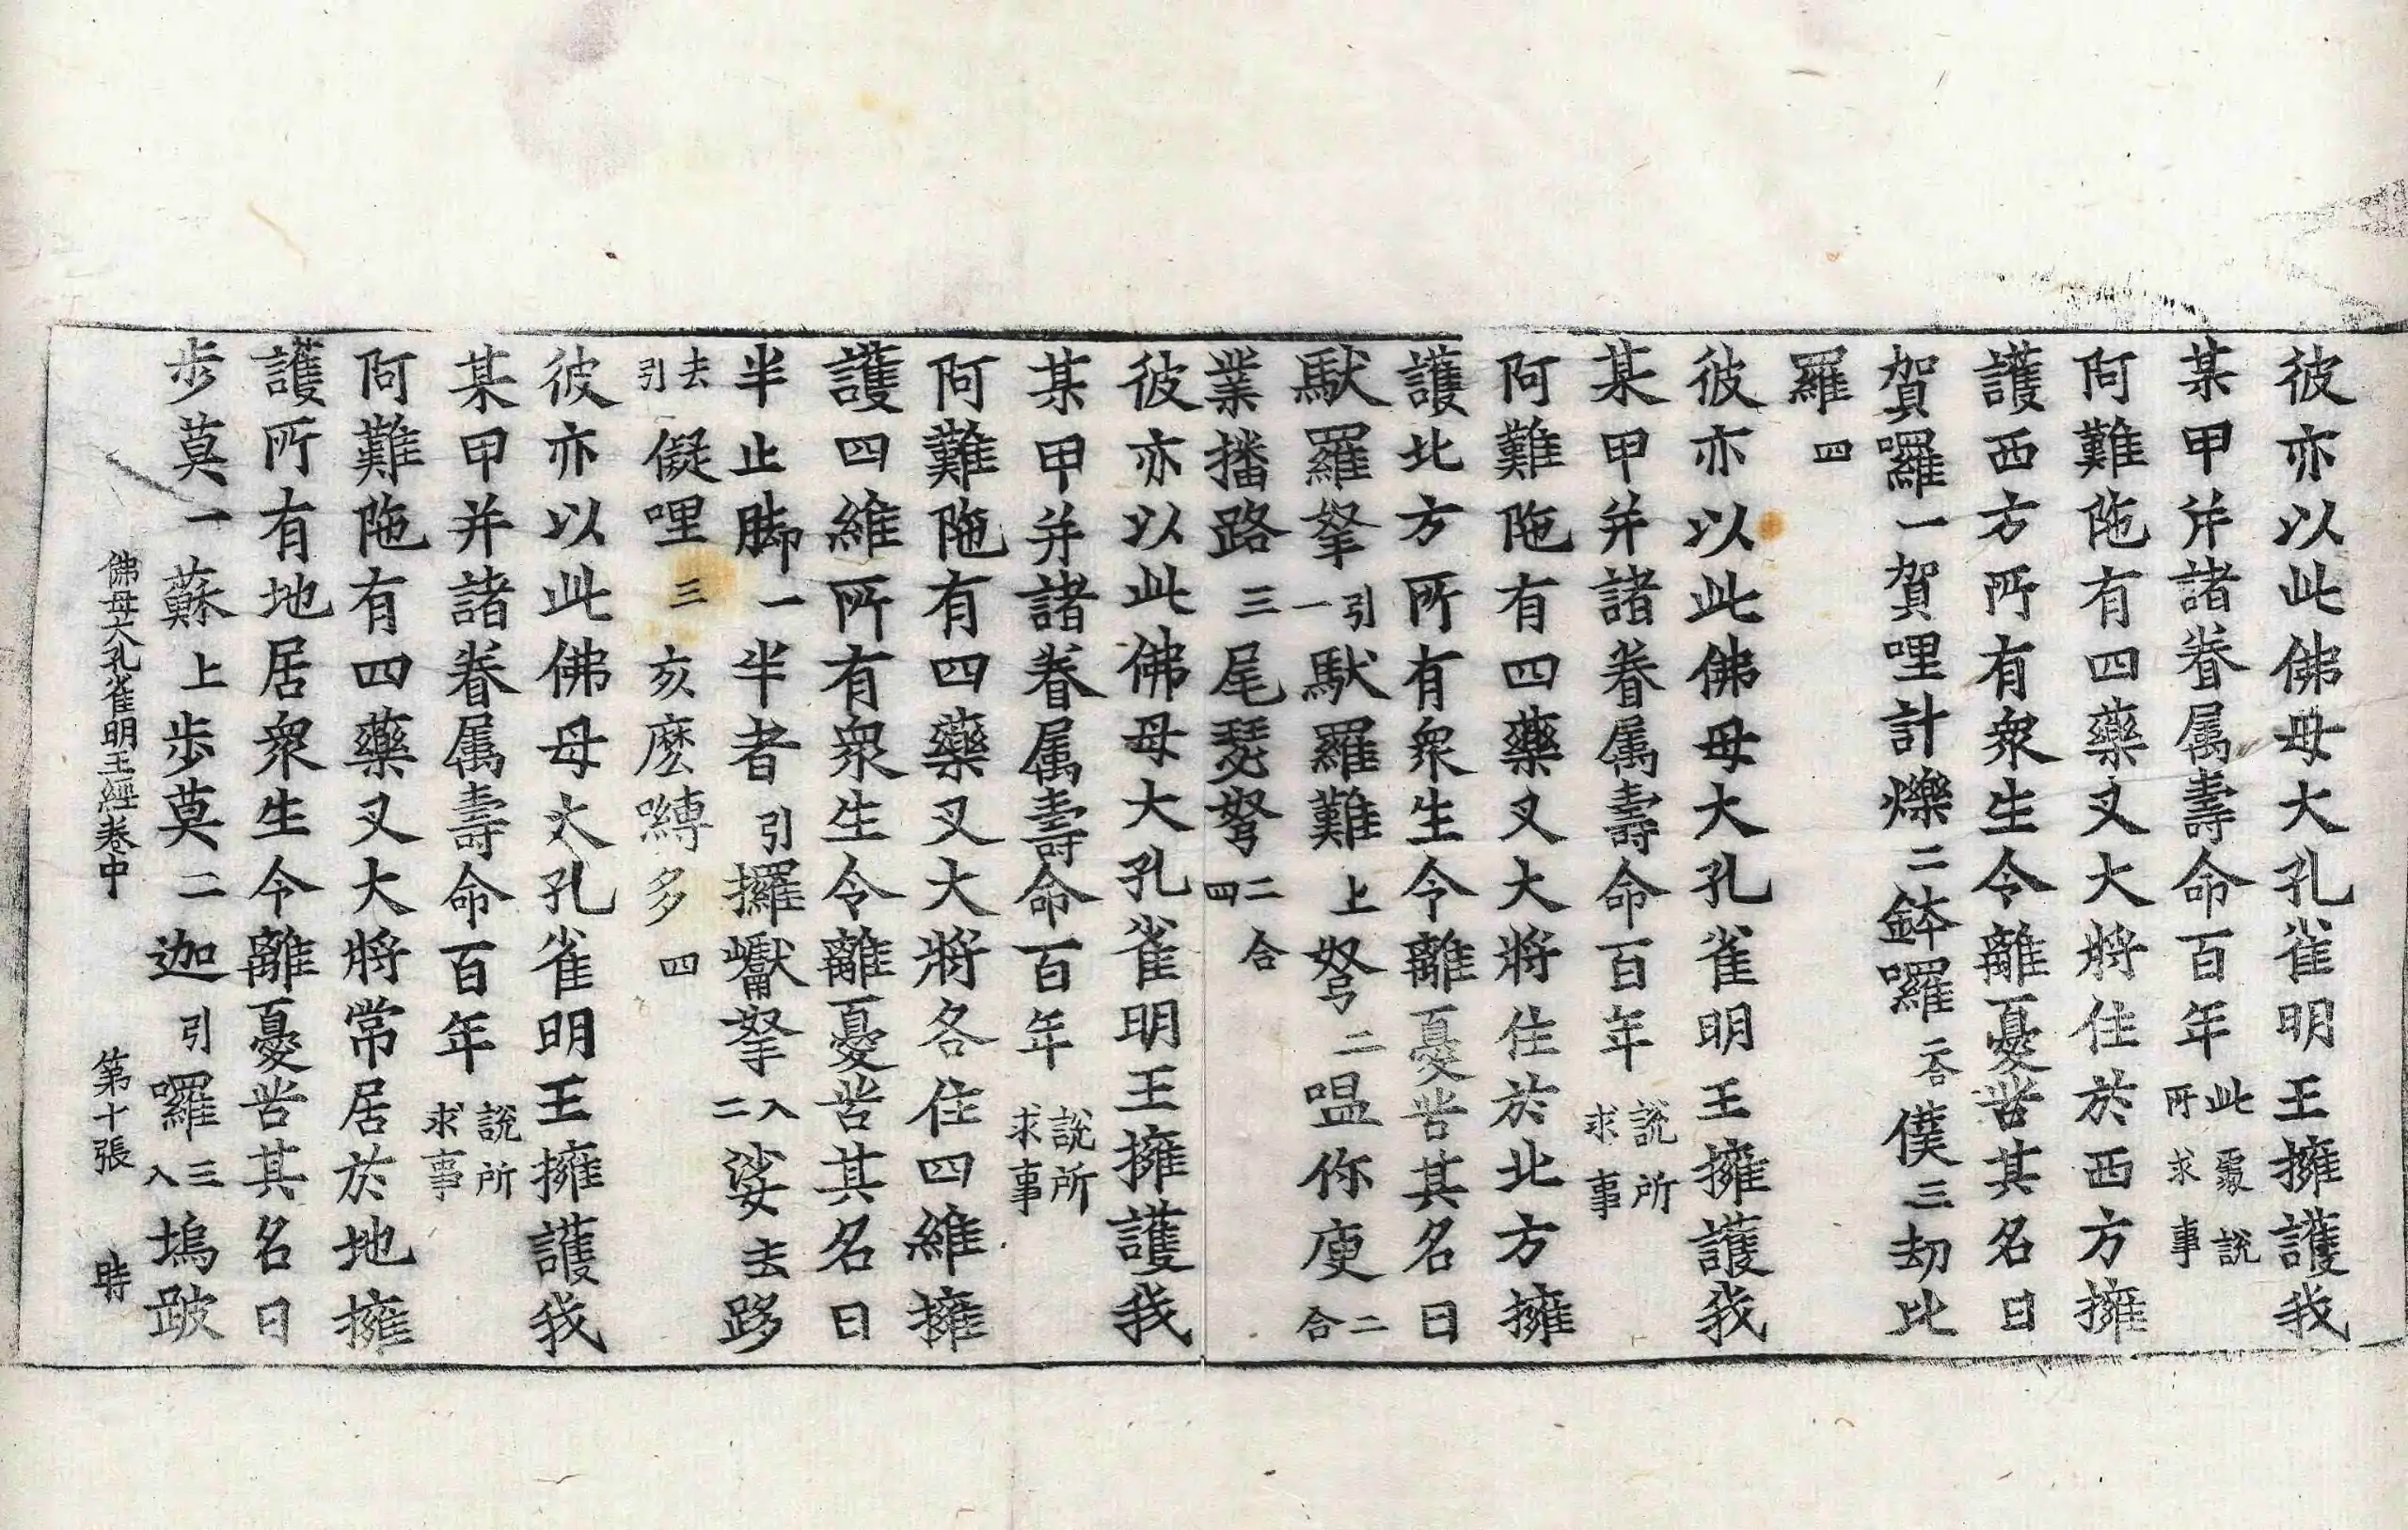 彼亦以此佛母大孔雀明王擁護我
某甲并諸眷属壽命百年此處說所求事
阿難陁有四藥叉大將住於西方擁
護西方所有衆生令離憂苦其名曰
賀囉一賀哩計爍二鉢囉二合僕三劫比
羅四
彼亦以此佛母大孔雀明王擁護我
某甲并諸眷属壽命百年說所求事
阿難陁有四藥叉大將住於北方擁
護北方所有衆生令離憂苦其名曰
馱羅拏引一馱羅難上弩二嗢你庾二合
業播路三尾瑟弩二合四
彼亦以此佛母大孔雀明王擁護我
某甲并諸眷属壽命百年說所求事
阿難陁有四藥叉大將各住四維擁
護四維所有衆生令離憂苦其名曰
半止脚一半者引攞巘拏入二娑去跢
去引儗哩三亥麼嚩多四
彼亦以此佛母大孔雀明王擁護我
某甲并諸眷属壽命百年說所求事
阿難陁有四藥叉大將常居於地擁
護所有地居衆生令離憂苦其名曰
步莫一蘇上步莫二迦引囉三入塢跛
佛母大孔雀明王經卷中 第十張 時